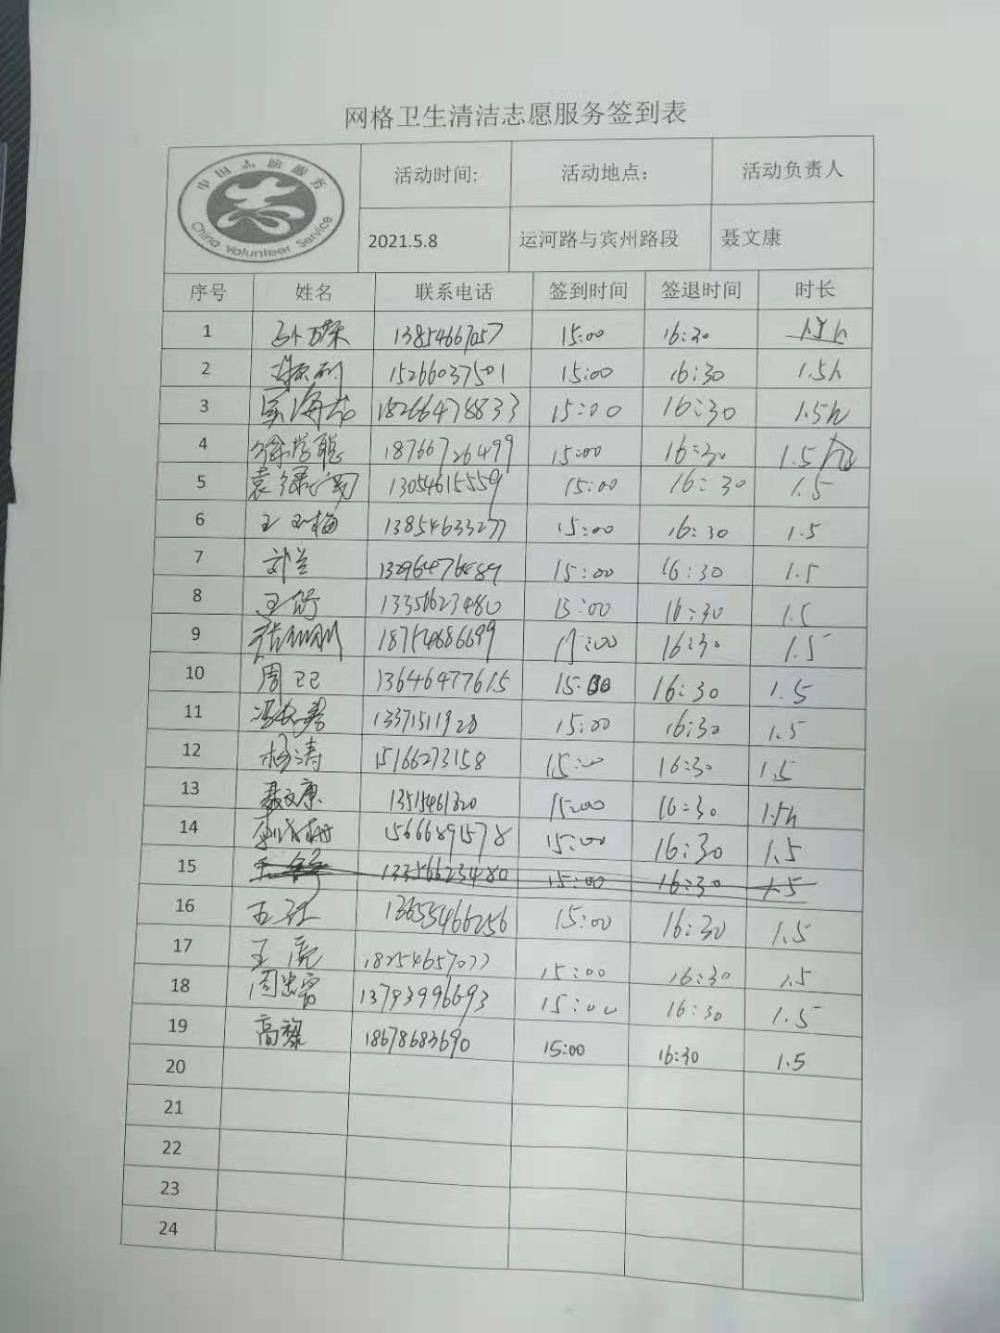 网格卫生清洁志愿服务签到表
中国志愿服务
China Volunteer Service
活动时间: 活动地点: 活动负责人
2021.5.8 运河路与宾州路段 聂文康
序号 姓名 联系电话 签到时间 签退时间 时长
1 13854667057 15:00 16:30
2 15266037501 15:00 16:30 1.5h
3 18266478833 15:00 16:30 1.5h
4 徐学聪 18766726499 15:00 16:30 1.5
5 13054615559 15:00 16:30 1.5
6 王玉梅 13854633277 15:00 16:30 1.5
7 刘兰 13296476489 15:00 16:30 1.5
8 13356623480 15:00 16:30 1.5
9 18754686699 15:00 16:30 1.5
10 周卫己 13646477615 15:00 16:30 1.5
11 13371511928 15:00 16:30 1.5
12 杨涛 15166273158 15:00 16:30 1.5
13 聂文康 13515461320 15:00 16:30 1.5h
14 15666891578 15:00 16:30 1.5
15 13356623480 15:00 16:30 1.5
16 13655466256 15:00 16:30 1.5
17 王虎 18254657077 15:00 16:30 1.5
18 13793996693 15:00 16:30 1.5
19 高黎 18678683690 15:00 16:30 1.5
20
21
22
23
24